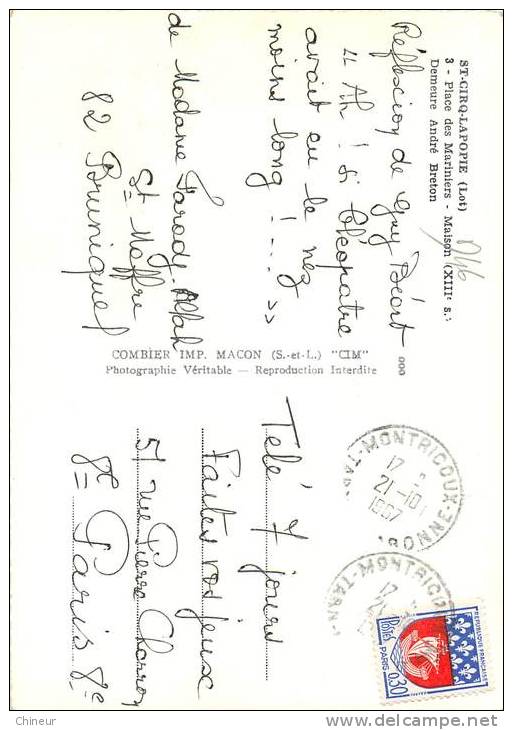 ST-CIRQ-LAPOPIE (Lot)
3 - Place des Mariniers - Maison (XIIIe s.)
Demeure André Breton
Réflexion de Guy Béart
" Ah ! si Cléopatre
avait eu le nez
moins long ! ... >>
de Madame Parody-Allah
St Maffre
82 Bruniquel
COMBIER IMP. MACON (S.-et-L.) "CIM"
Photographie Véritable — Reproduction Interdite
Télé 7 jours
Faites vos jeux
51 rue Pierre Charron
8e Paris 8e
MONTRICOUX
17
21-10
1967
TARN
MONTRICOUX
17
REPUBLIQUE FRANÇAISE
POSTES
PARIS
0,30
Chineur
www.delcampe.net